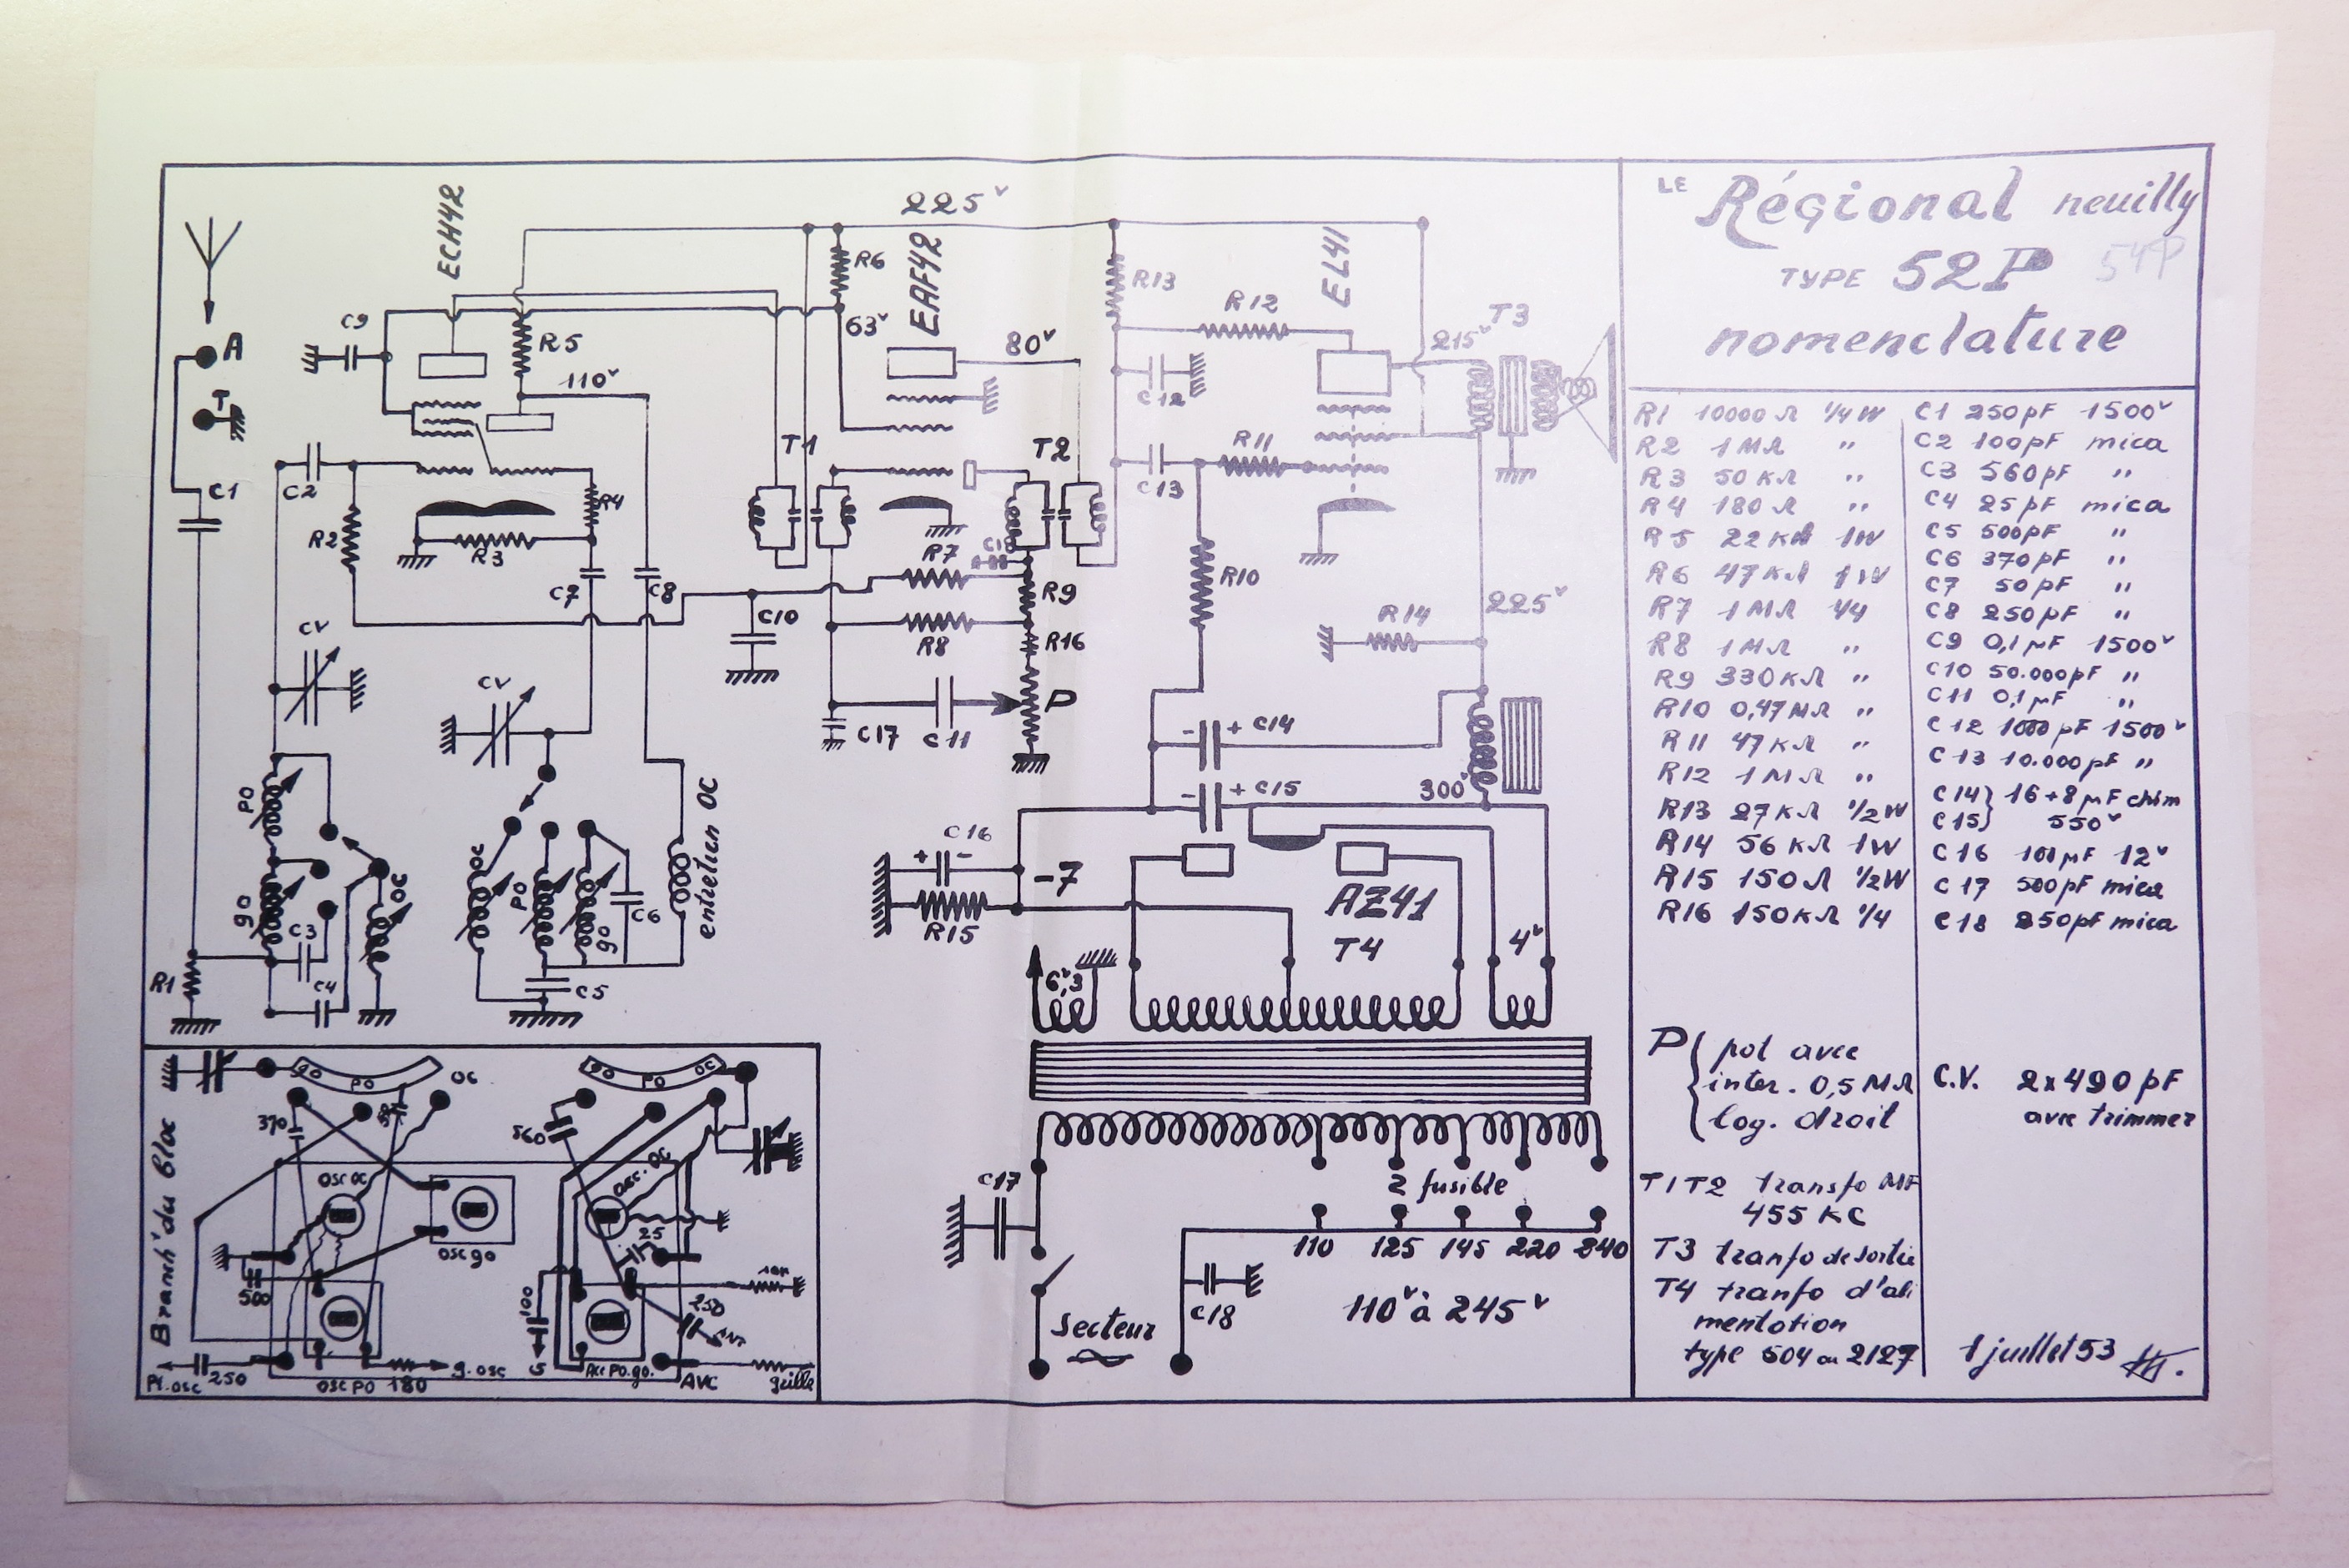 LE Régional neuilly
TYPE 52P 54P
nomenclature
R1 10000 Ω 1/4 W
R2 1 MΩ "
R3 50 KΩ "
R4 180 Ω "
R5 22 KΩ 1W
R6 47 KΩ 1W
R7 1 MΩ 1/4
R8 1 MΩ "
R9 330 KΩ "
R10 0,47 MΩ "
R11 47 KΩ "
R12 1 MΩ "
R13 27 KΩ 1/2 W
R14 56 KΩ 1W
R15 150 Ω 1/2 W
R16 150 KΩ 1/4
C1 250 pF 1500v
C2 100 pF mica
C3 560 pF "
C4 25 pF mica
C5 500 pF "
C6 370 pF "
C7 50 pF "
C8 250 pF "
C9 0,1 μF 1500v
C10 50.000 pF "
C11 0,1 μF "
C12 1000 pF 1500v
C13 10.000 pF "
C14 } 16 + 8 μF chim
C15 } 550v
C16 100 μF 12v
C17 500 pF mica
C18 250 pF mica
P { pot avec
inter. 0,5 MΩ
log. droit
C.V. 2 x 490 pF
avec trimmer
T1 T2 transfo MF
455 KC
T3 tranfo de sortie
T4 tranfo d'ali
mentation
type 504 ou 2127
1 juillet 53
ECH42
225v
EAF42
EL41
R6
R13
R12
T3
C9
R5
63v
80v
215v
110v
A
T
C12
T1
T2
R11
C13
C1
C2
R4
R2
R3
R7
R10
C7
C8
R9
C10
R8
R16
R14
225v
CV
CV
P
C17
C11
- + C14
- + C15
300v
PO
go
OC
OC
PO
go
C6
entretien OC
C16
+ -
-7
R15
AZ41
T4
4v
C3
C4
R1
C5
6v,3
Branch' du Bloc
go PO OC
go PO OC
370
560
osc oc
osc. oc
25
osc go
500
100
10K
250
Pl. osc
250
osc PO
180
g. osc
Acc PO. go.
AVC
grille
C17
2 fusible
110 125 145 220 240
C18
secteur
110v à 245v